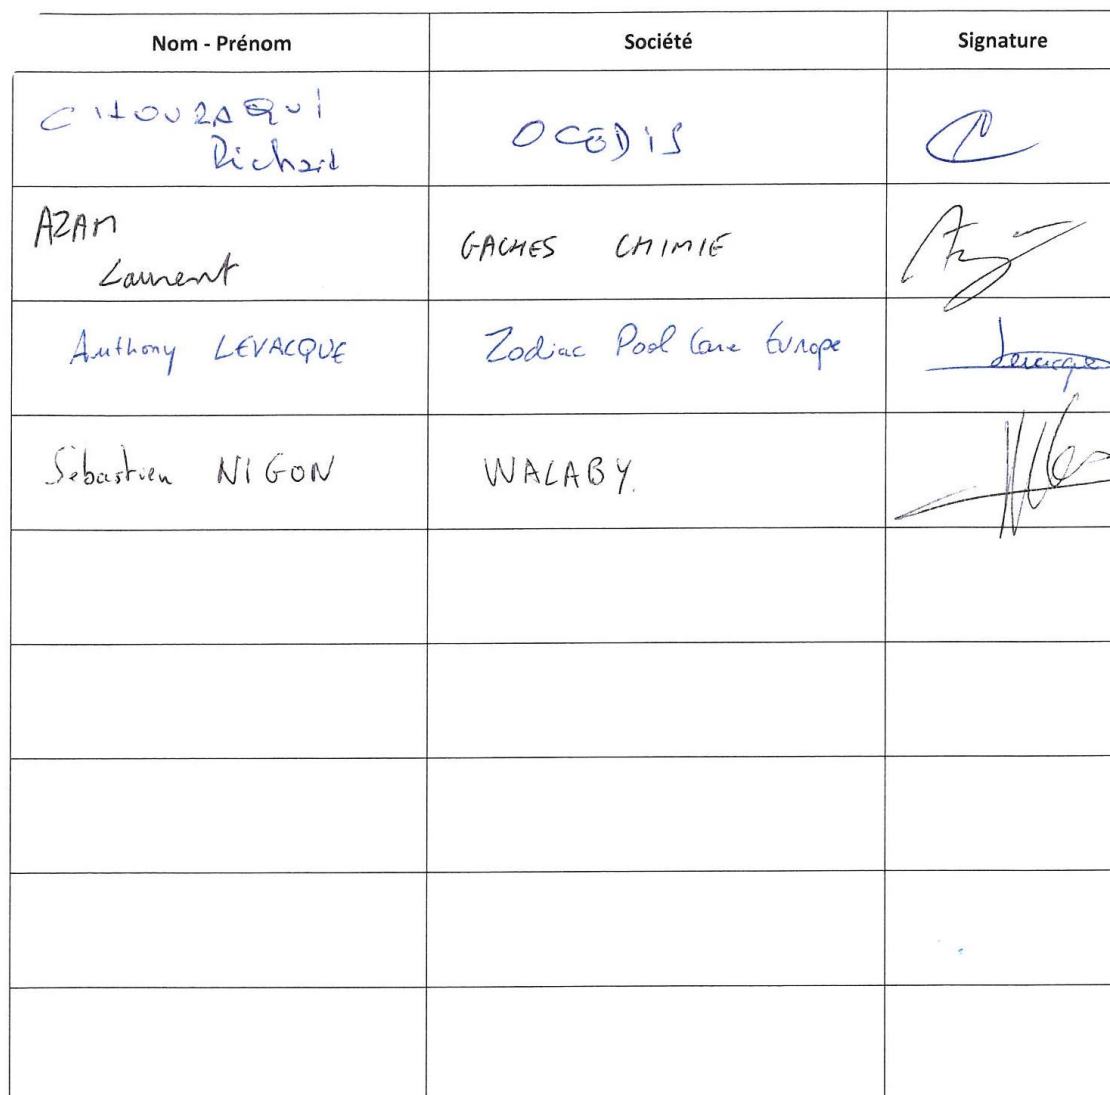 Nom - Prénom Société Signature
CHOURAQUI
Richard OCEDIS
AZAM
Laurent GACHES CHIMIE
Anthony LEVACQUE Zodiac Pool Care Europe Levacque
Sébastien NIGON WALABY.